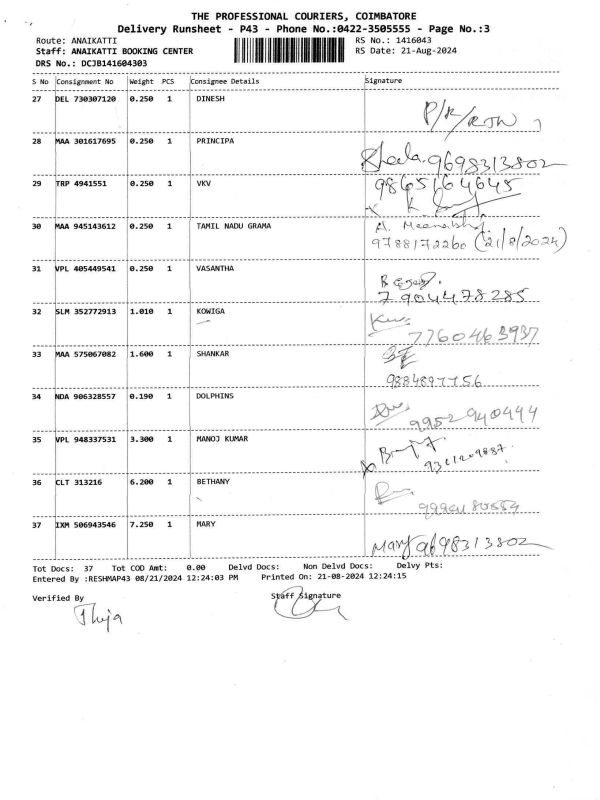 THE PROFESSIONAL COURIERS, COIMBATORE
Delivery Runsheet - P43 - Phone No.:0422-3505555 - Page No.:3
Route: ANAIKATTI RS No.: 1416043
Staff: ANAIKATTI BOOKING CENTER RS Date: 21-Aug-2024
DRS No.: DCJB141604303
S No Consignment No Weight PCS Consignee Details Signature
27 DEL 730307120 0.250 1 DINESH
28 MAA 301617695 0.250 1 PRINCIPA
Sheela 9698313802
29 TRP 4941551 0.250 1 VKV 9865164645
30 MAA 945143612 0.250 1 TAMIL NADU GRAMA
9788172260 (21/8/2024)
31 VPL 405449541 0.250 1 VASANTHA
7904478285
32 SLM 352772913 1.010 1 KOWIGA
7760463937
33 MAA 575067082 1.600 1 SHANKAR
34 NDA 906328557 0.190 1 DOLPHINS
9952940444
35 VPL 948337531 3.300 1 MANOJ KUMAR
36 CLT 313216 6.200 1 BETHANY
37 IXM 506943546 7.250 1 MARY
Mary 9698313802
Tot Docs: 37 Tot COD Amt: 0.00 Delvd Docs: Non Delvd Docs: Delvy Pts:
Entered By :RESHMAP43 08/21/2024 12:24:03 PM Printed On: 21-08-2024 12:24:15
Verified By Staff Signature
Thija